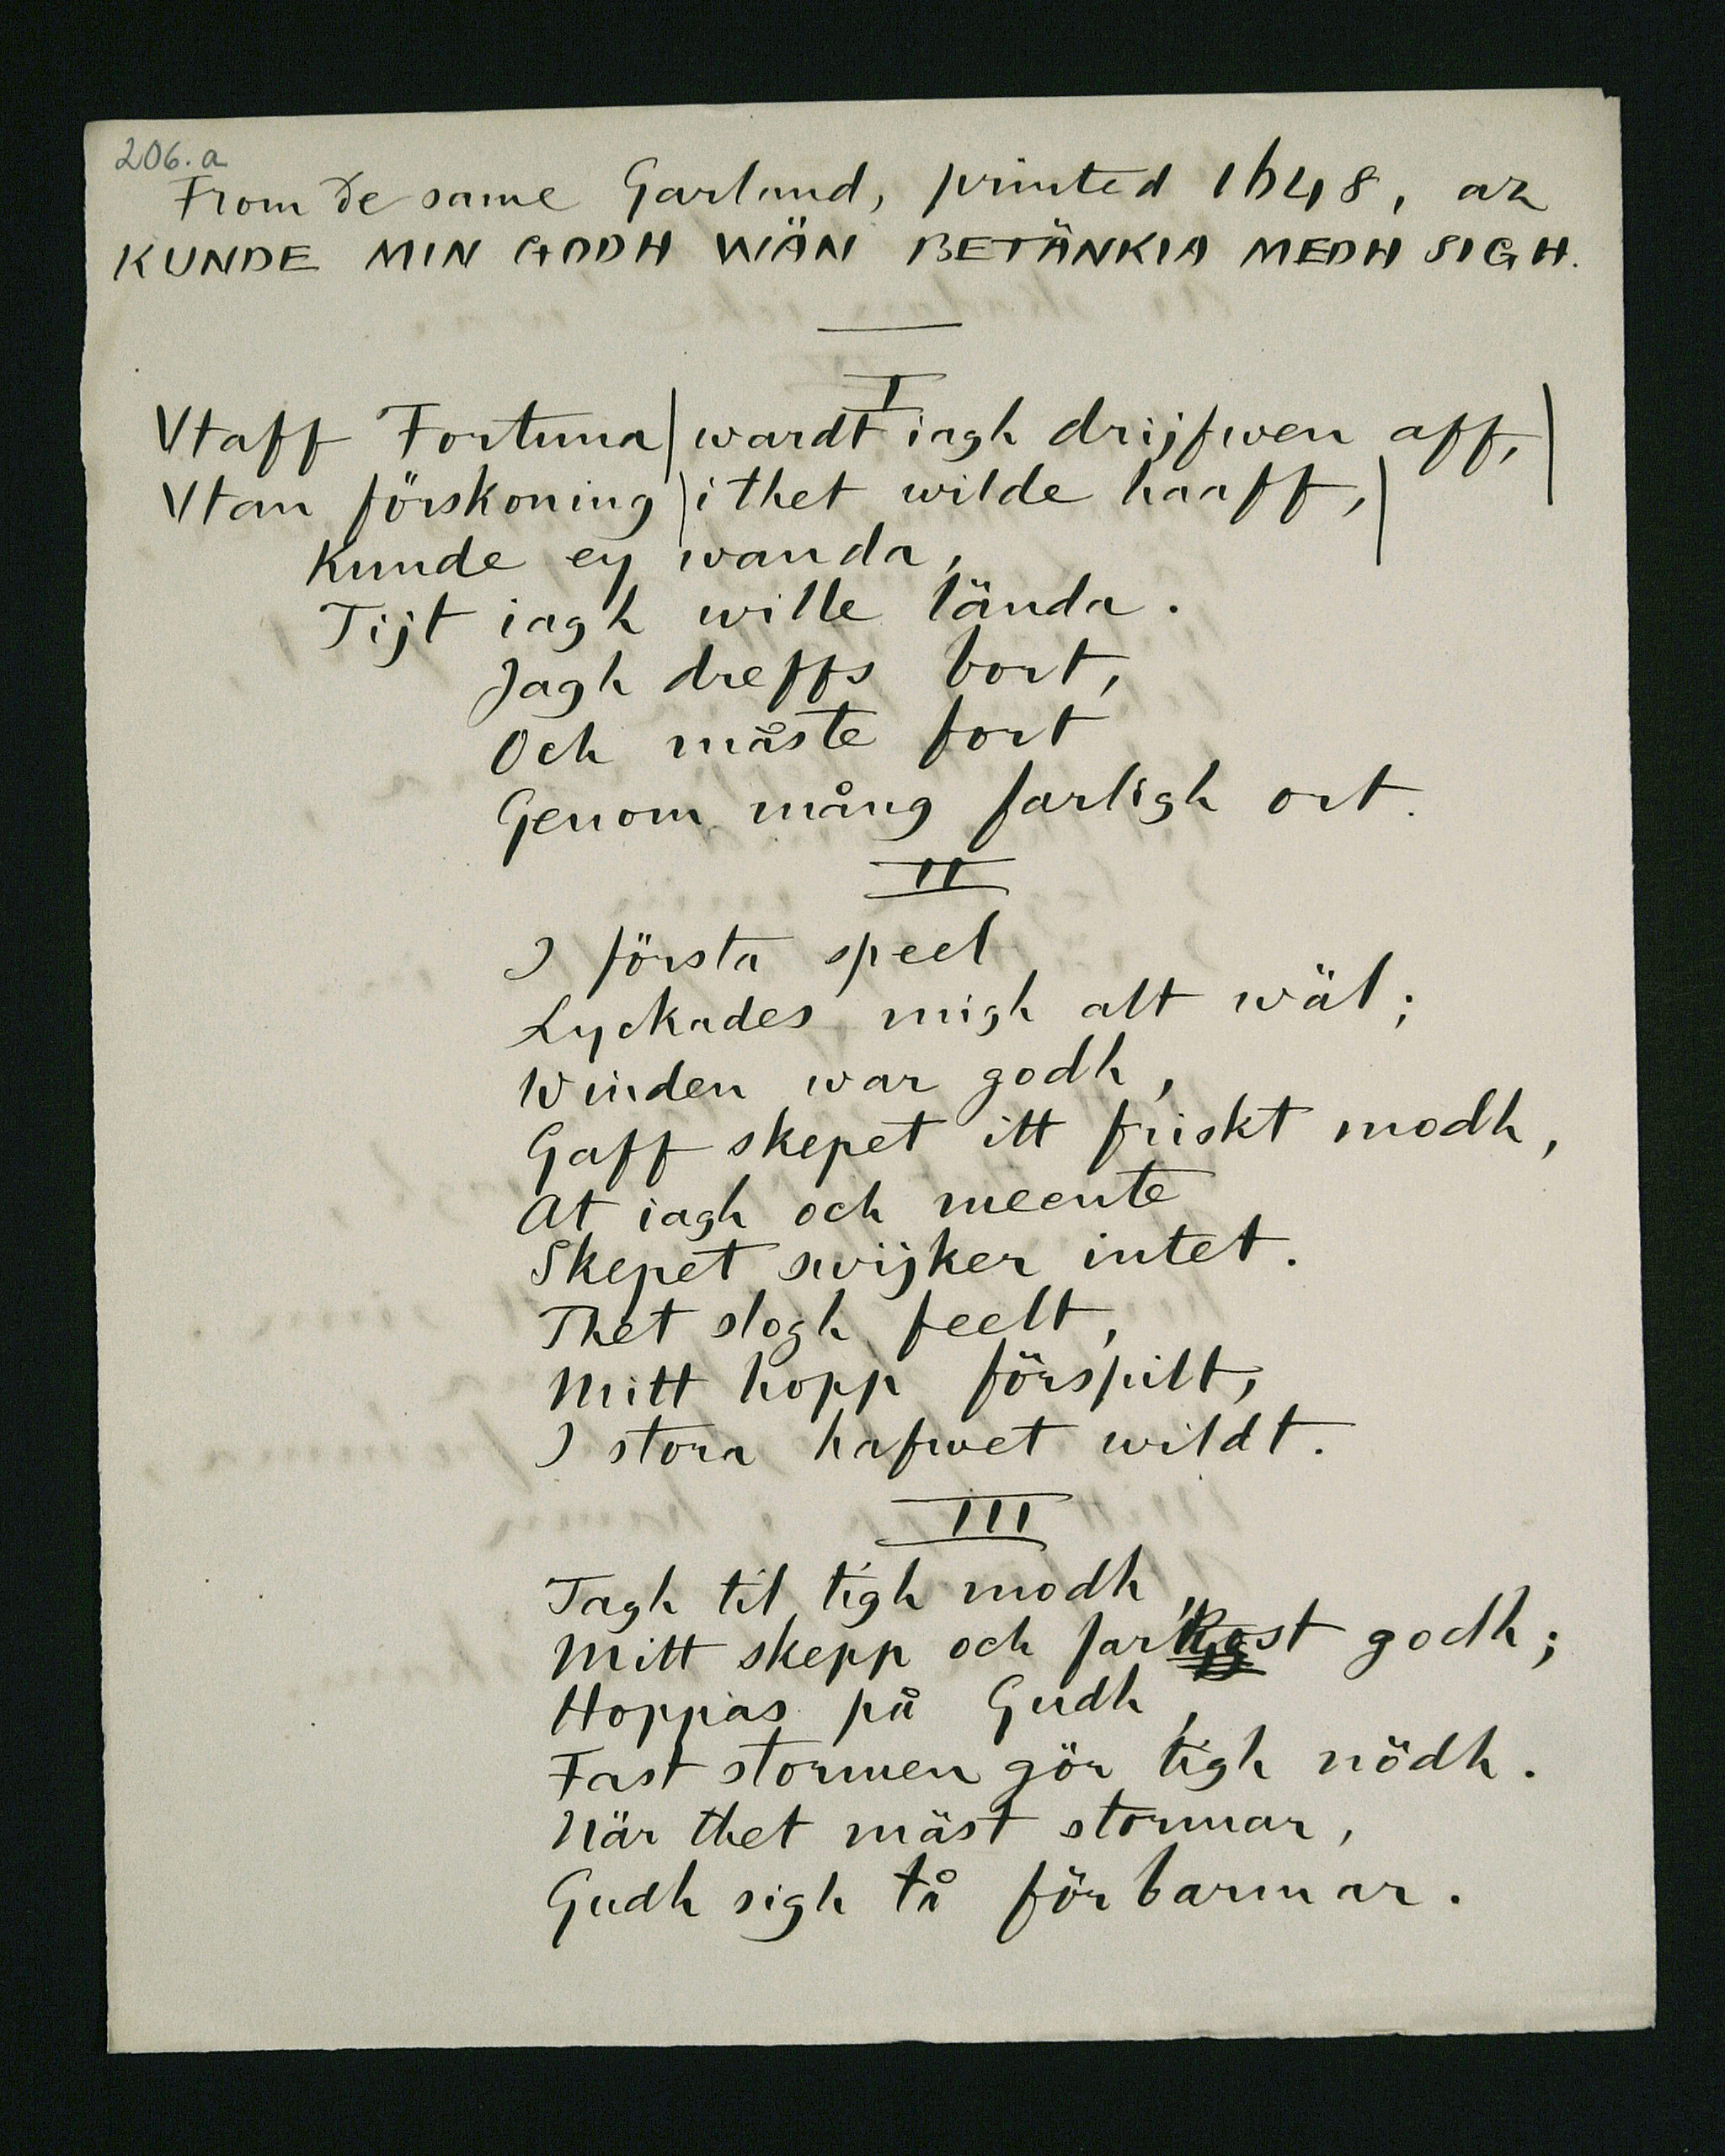 206. a
From de same Garland, printed 1648, az
KUNDE MIN GODH WÄN BETÄNKIA MEDH SIGH.
I
Vtaff Fortuna | wardt iagh drijfwen aff, |
Vtan förskoning | i thet wilde haaff, |
Kunde ey wanda,
Tijt iagh wille lända.
Jagh dreffs bort,
Och måste fort
Genom mång farligh ort.
II
I första speel
Lyckades migh alt wäl;
Winden war godh,
Gaff skepet itt friskt modh,
At iagh och meente
Skepet swijker intet.
Thet slogh feelt,
Mitt hopp förspilt,
I stora hafwet wildt.
III
Tagh til tigh modh,
Mitt skepp och farkost godh;
Hoppas på Gudh,
Fast stormen gör tigh nödh.
När thet mäst stormar,
Gudh sigh tå förbarmar.